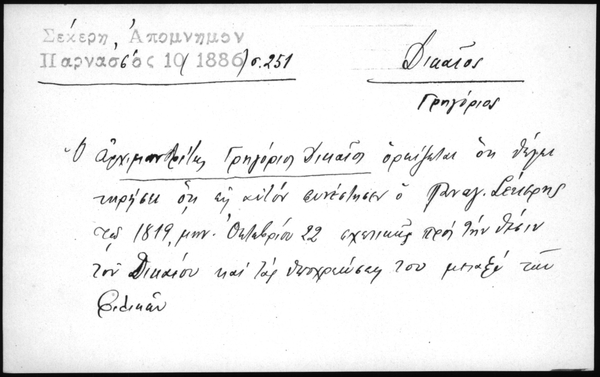 Σεκερη, Ἀπομνημον
Παρνασσος 10 (1886) σ. 251
Δικαῖος
Γρηγόριος
Ὁ ἀρχιμανδρίτης Γρηγόριος Δικαῖος ὁρκίζεται ὅτι θέλει
τηρήσει ὅτι εἰς αὐτόν συνέστησεν ὁ Παναγ. Σέκερης
τῷ 1819, μην. Ὀκτωβρίου 22 σχετικῶς πρός τήν θέσιν
τοῦ Δικαίου καί τάς ὑποχρεώσεις του μεταξύ τῶν
Φιλικῶν